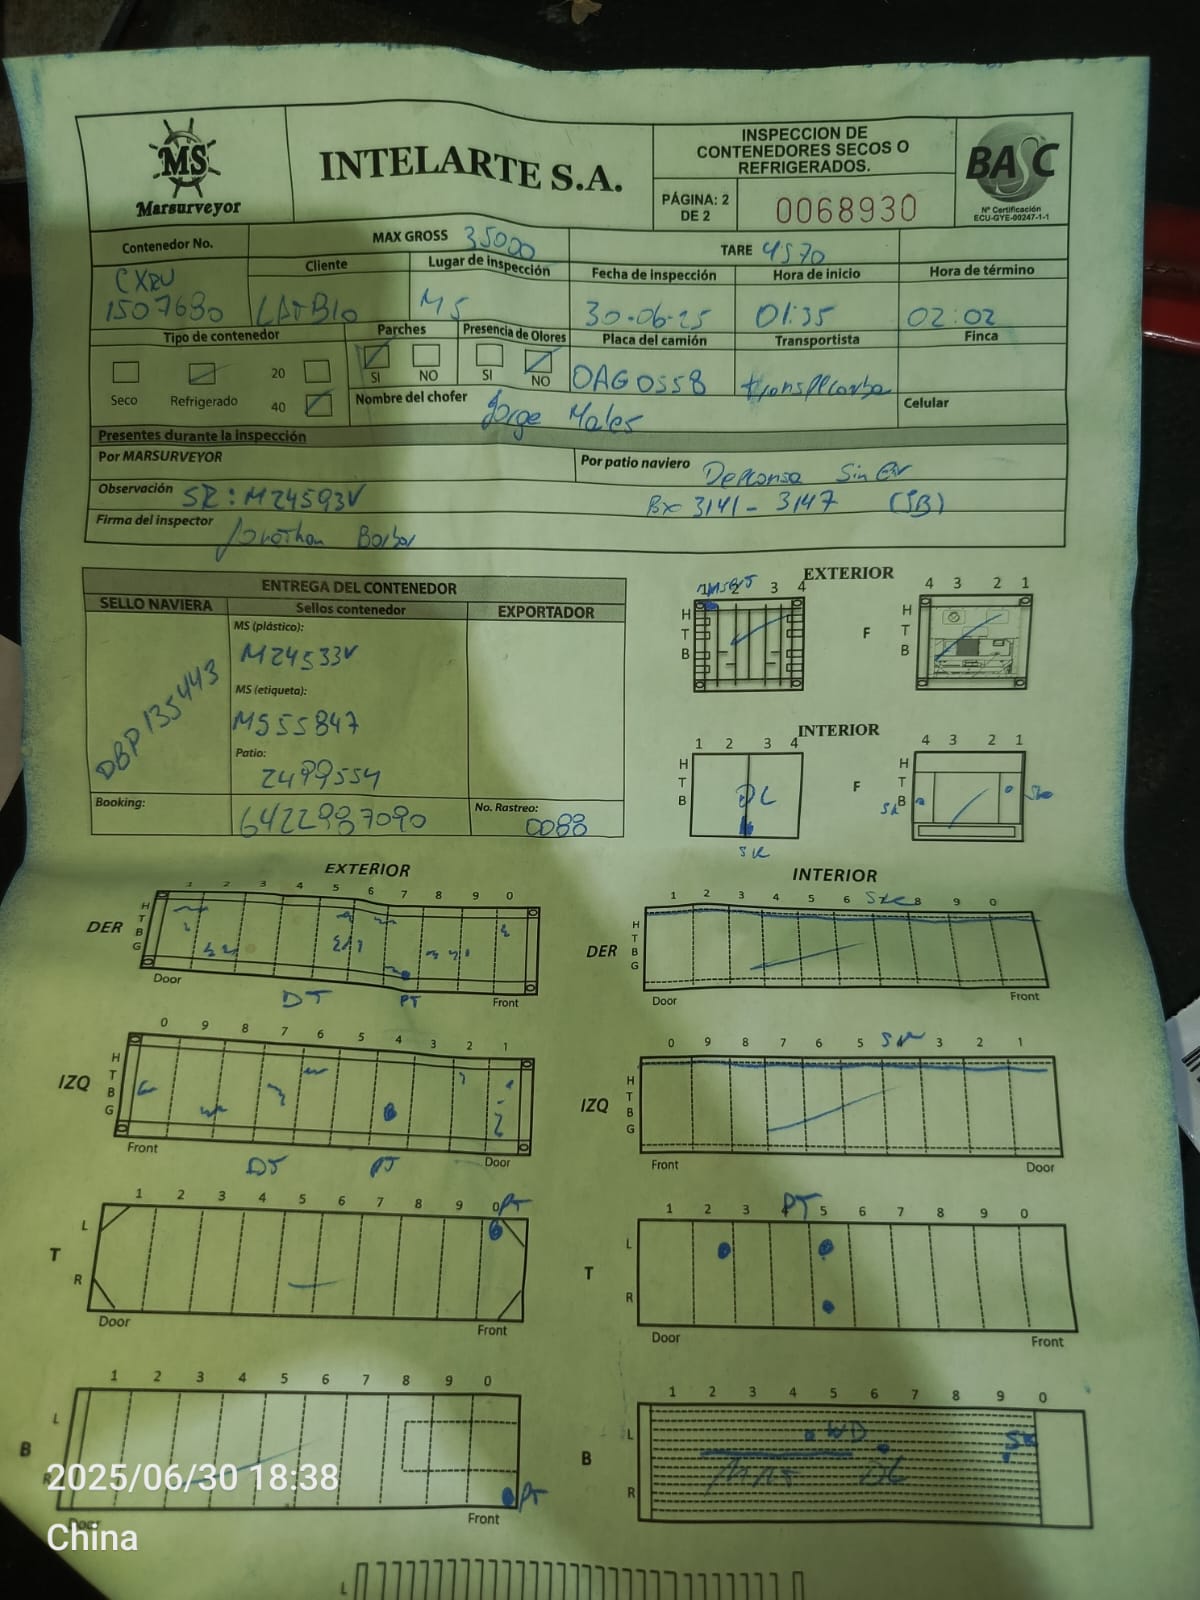 MS
Marsurveyor
INTELARTE S.A.
INSPECCION DE
CONTENEDORES SECOS O
REFRIGERADOS.
PÁGINA: 2
DE 2
0068930
BASC
Nº Certificación
ECU-GYE-00247-1-1
Contenedor No.
MAX GROSS 35000
TARE 4570
CXRU
1507680
Cliente
Lugar de inspección
MS
Fecha de inspección
30-06-25
Hora de inicio
01:35
Hora de término
02:02
Tipo de contenedor
Seco
Refrigerado
20
40
Parches
SI
NO
Presencia de Olores
SI
NO
Placa del camión
OAG0558
Transportista
Finca
Nombre del chofer Jorge Males
Celular
Presentes durante la inspección
Por MARSURVEYOR
Por patio naviero
Sin
Observación SR: M24593V
3141 - 3147 (SB)
Firma del inspector
Jonathan
ENTREGA DEL CONTENEDOR
SELLO NAVIERA
Sellos contenedor
EXPORTADOR
DBP135443
MS (plástico):
M24533V
MS (etiqueta):
MS55847
Patio:
2499554
Booking:
6422987090
No. Rastreo:
0088
EXTERIOR
2 3 4
H
T
B
F
4 3 2 1
H
T
B
INTERIOR
1 2 3 4
H
T
B
DL
SR
F
4 3 2 1
H
T
B
SR
EXTERIOR
1 2 3 4 5 6 7 8 9 0
DER
H
T
B
G
Door
DT
PT
Front
INTERIOR
1 2 3 4 5 6 8 9 0
DER
H
T
B
G
Door
Front
0 9 8 7 6 5 4 3 2 1
IZQ
H
T
B
G
Front
DT
PT
Door
0 9 8 7 6 5 SR 3 2 1
IZQ
H
T
B
G
Front
Door
1 2 3 4 5 6 7 8 9 0 PT
T
L
R
Door
Front
1 2 3 PT 5 6 7 8 9 0
T
L
R
Door
Front
1 2 3 4 5 6 7 8 9 0
B
L
R
PT
Door
Front
1 2 3 4 5 6 7 8 9 0
B
L
R
WD
SR
DL
2025/06/30 18:38
China
L